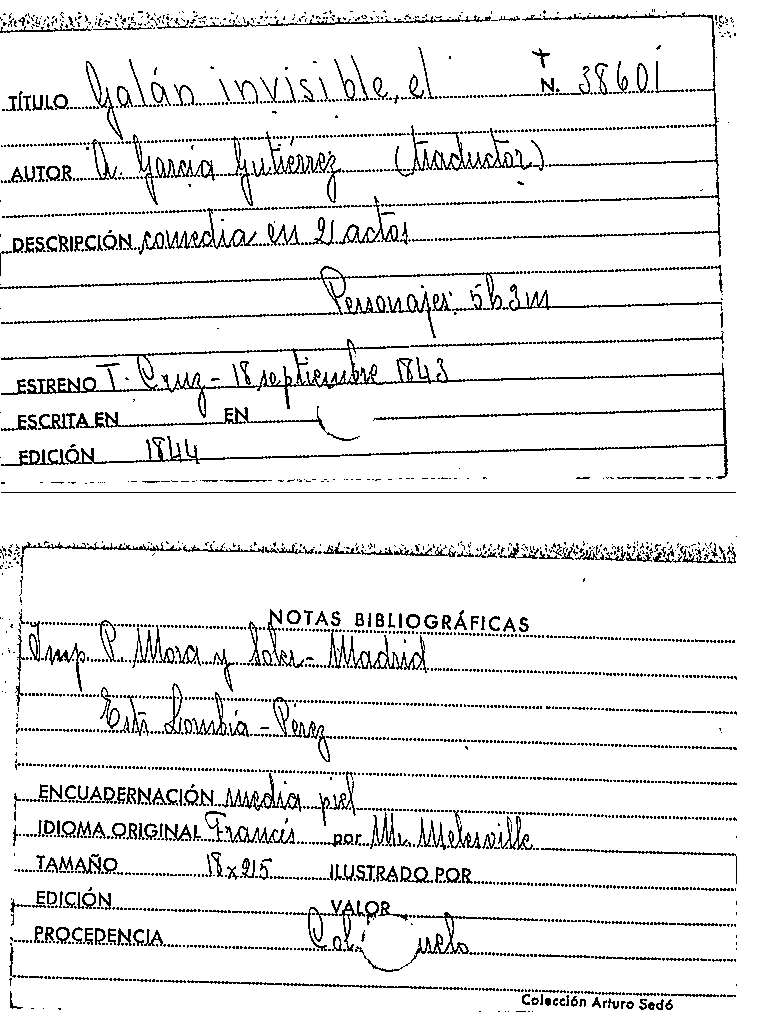 TÍTULO Galán invisible, el N. 38601
AUTOR A. García Gutiérrez (traductor)
DESCRIPCIÓN comedia en 2 actos
Personajes: 5h 3m
ESTRENO T. Cruz - 18 septiembre 1843
ESCRITA EN EN
EDICIÓN 1844
NOTAS BIBLIOGRÁFICAS
Imp P. Mora y Soler - Madrid
Estr Lombía - Pérez
ENCUADERNACIÓN media piel
IDIOMA ORIGINAL Francés por Mr. Melesville
TAMAÑO 18x215 ILUSTRADO POR
EDICIÓN VALOR
PROCEDENCIA Col.
Colección Arturo Sedó